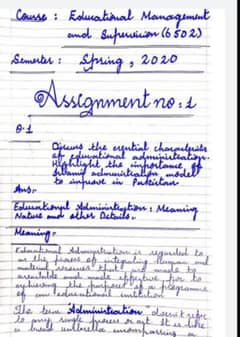 Course : Educational Management
and Supervision (6502)
Semester : Spring, 2020
Assignment no : 1
Q.1
Discuss the essential characteristics
of educational administration.
Highlight the importance of
Islamic administration model
to improve in Pakistan
Ans:-
Educational Administration : Meaning
Nature and other Details:-
Meaning:-
Educational Administration is regarded to
as the process of integrating human and
material resources that are made to
available and made effective for
achieving the purposes of a programme
of an educational institution.
The term "Administration" doesn't refer
to any single process or act. It is like
a broad umbrella encompassing a